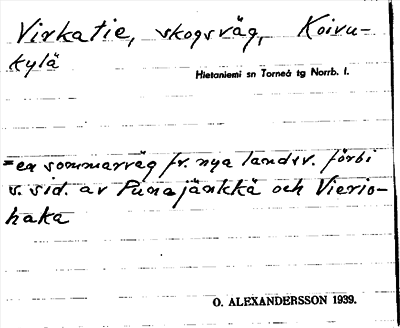 Virkatie, skogsväg, Koivu-
kylä
Hietaniemi sn Torneå tg Norrb. l.
= en sommarväg fr. nya landsv. förbi
v. sid. av Punajänkkä och Vierio-
haka
O. ALEXANDERSSON 1939.